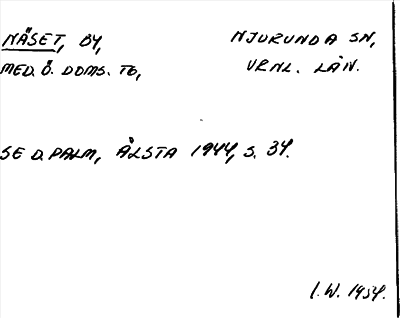 NÄSET, BY, NJURUNDA SN,
MED. Ö. DOMS. TG, VRNL. LÄN.
SE D. PALM, ÄLSTA 1944, S. 34.
I. W. 1954.